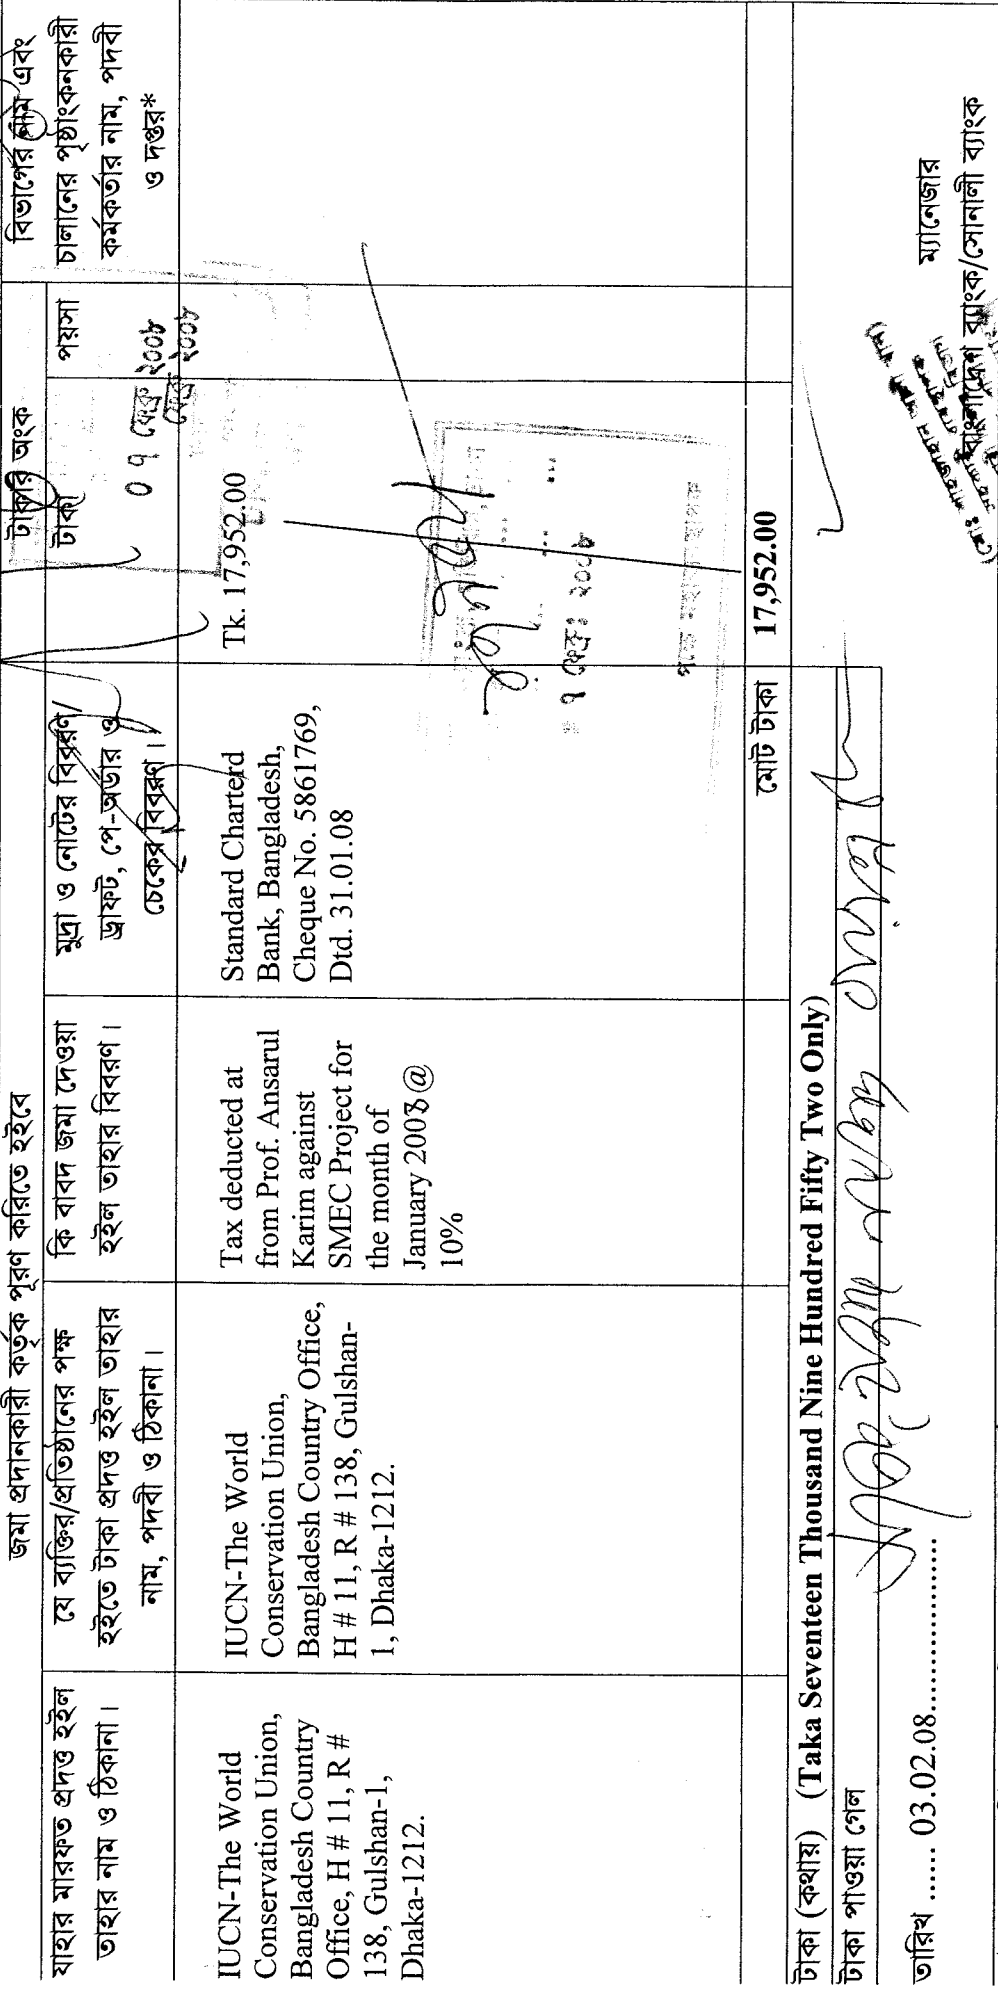 জমা প্রদানকারী কর্তৃক পূরণ করিতে হইবে
টাকার অংক
বিভাগের নাম এবং
চালানের পৃষ্ঠাংকনকারী
কর্মকর্তার নাম, পদবী
ও দপ্তর*
যাহার মারফত প্রদত্ত হইল
তাহার নাম ও ঠিকানা।
যে ব্যক্তির/প্রতিষ্ঠানের পক্ষ
হইতে টাকা প্রদত্ত হইল তাহার
নাম, পদবী ও ঠিকানা।
কি বাবদ জমা দেওয়া
হইল তাহার বিবরণ।
মুদ্রা ও নোটের বিবরণ/
ড্রাফট, পে-অর্ডার ও
চেকের বিবরণ।
টাকা
পয়সা
০৭ ফেব্রু ২০০৮
ফেব্রু ২০০৮
IUCN-The World
Conservation Union,
Bangladesh Country
Office, H # 11, R #
138, Gulshan-1,
Dhaka-1212.
IUCN-The World
Conservation Union,
Bangladesh Country Office,
H # 11, R # 138, Gulshan-
1, Dhaka-1212.
Tax deducted at
from Prof. Ansarul
Karim against
SMEC Project for
the month of
January 2008@
10%
Standard Charterd
Bank, Bangladesh,
Cheque No. 5861769,
Dtd. 31.01.08
Tk. 17,952.00
৭ ফেব্রুঃ ২০০৮
মোট টাকা
17,952.00
টাকা (কথায়) (Taka Seventeen Thousand Nine Hundred Fifty Two Only)
টাকা পাওয়া গেল
তারিখ ...... 03.02.08..............................
ম্যানেজার
বাংলাদেশ ব্যাংক/সোনালী ব্যাংক